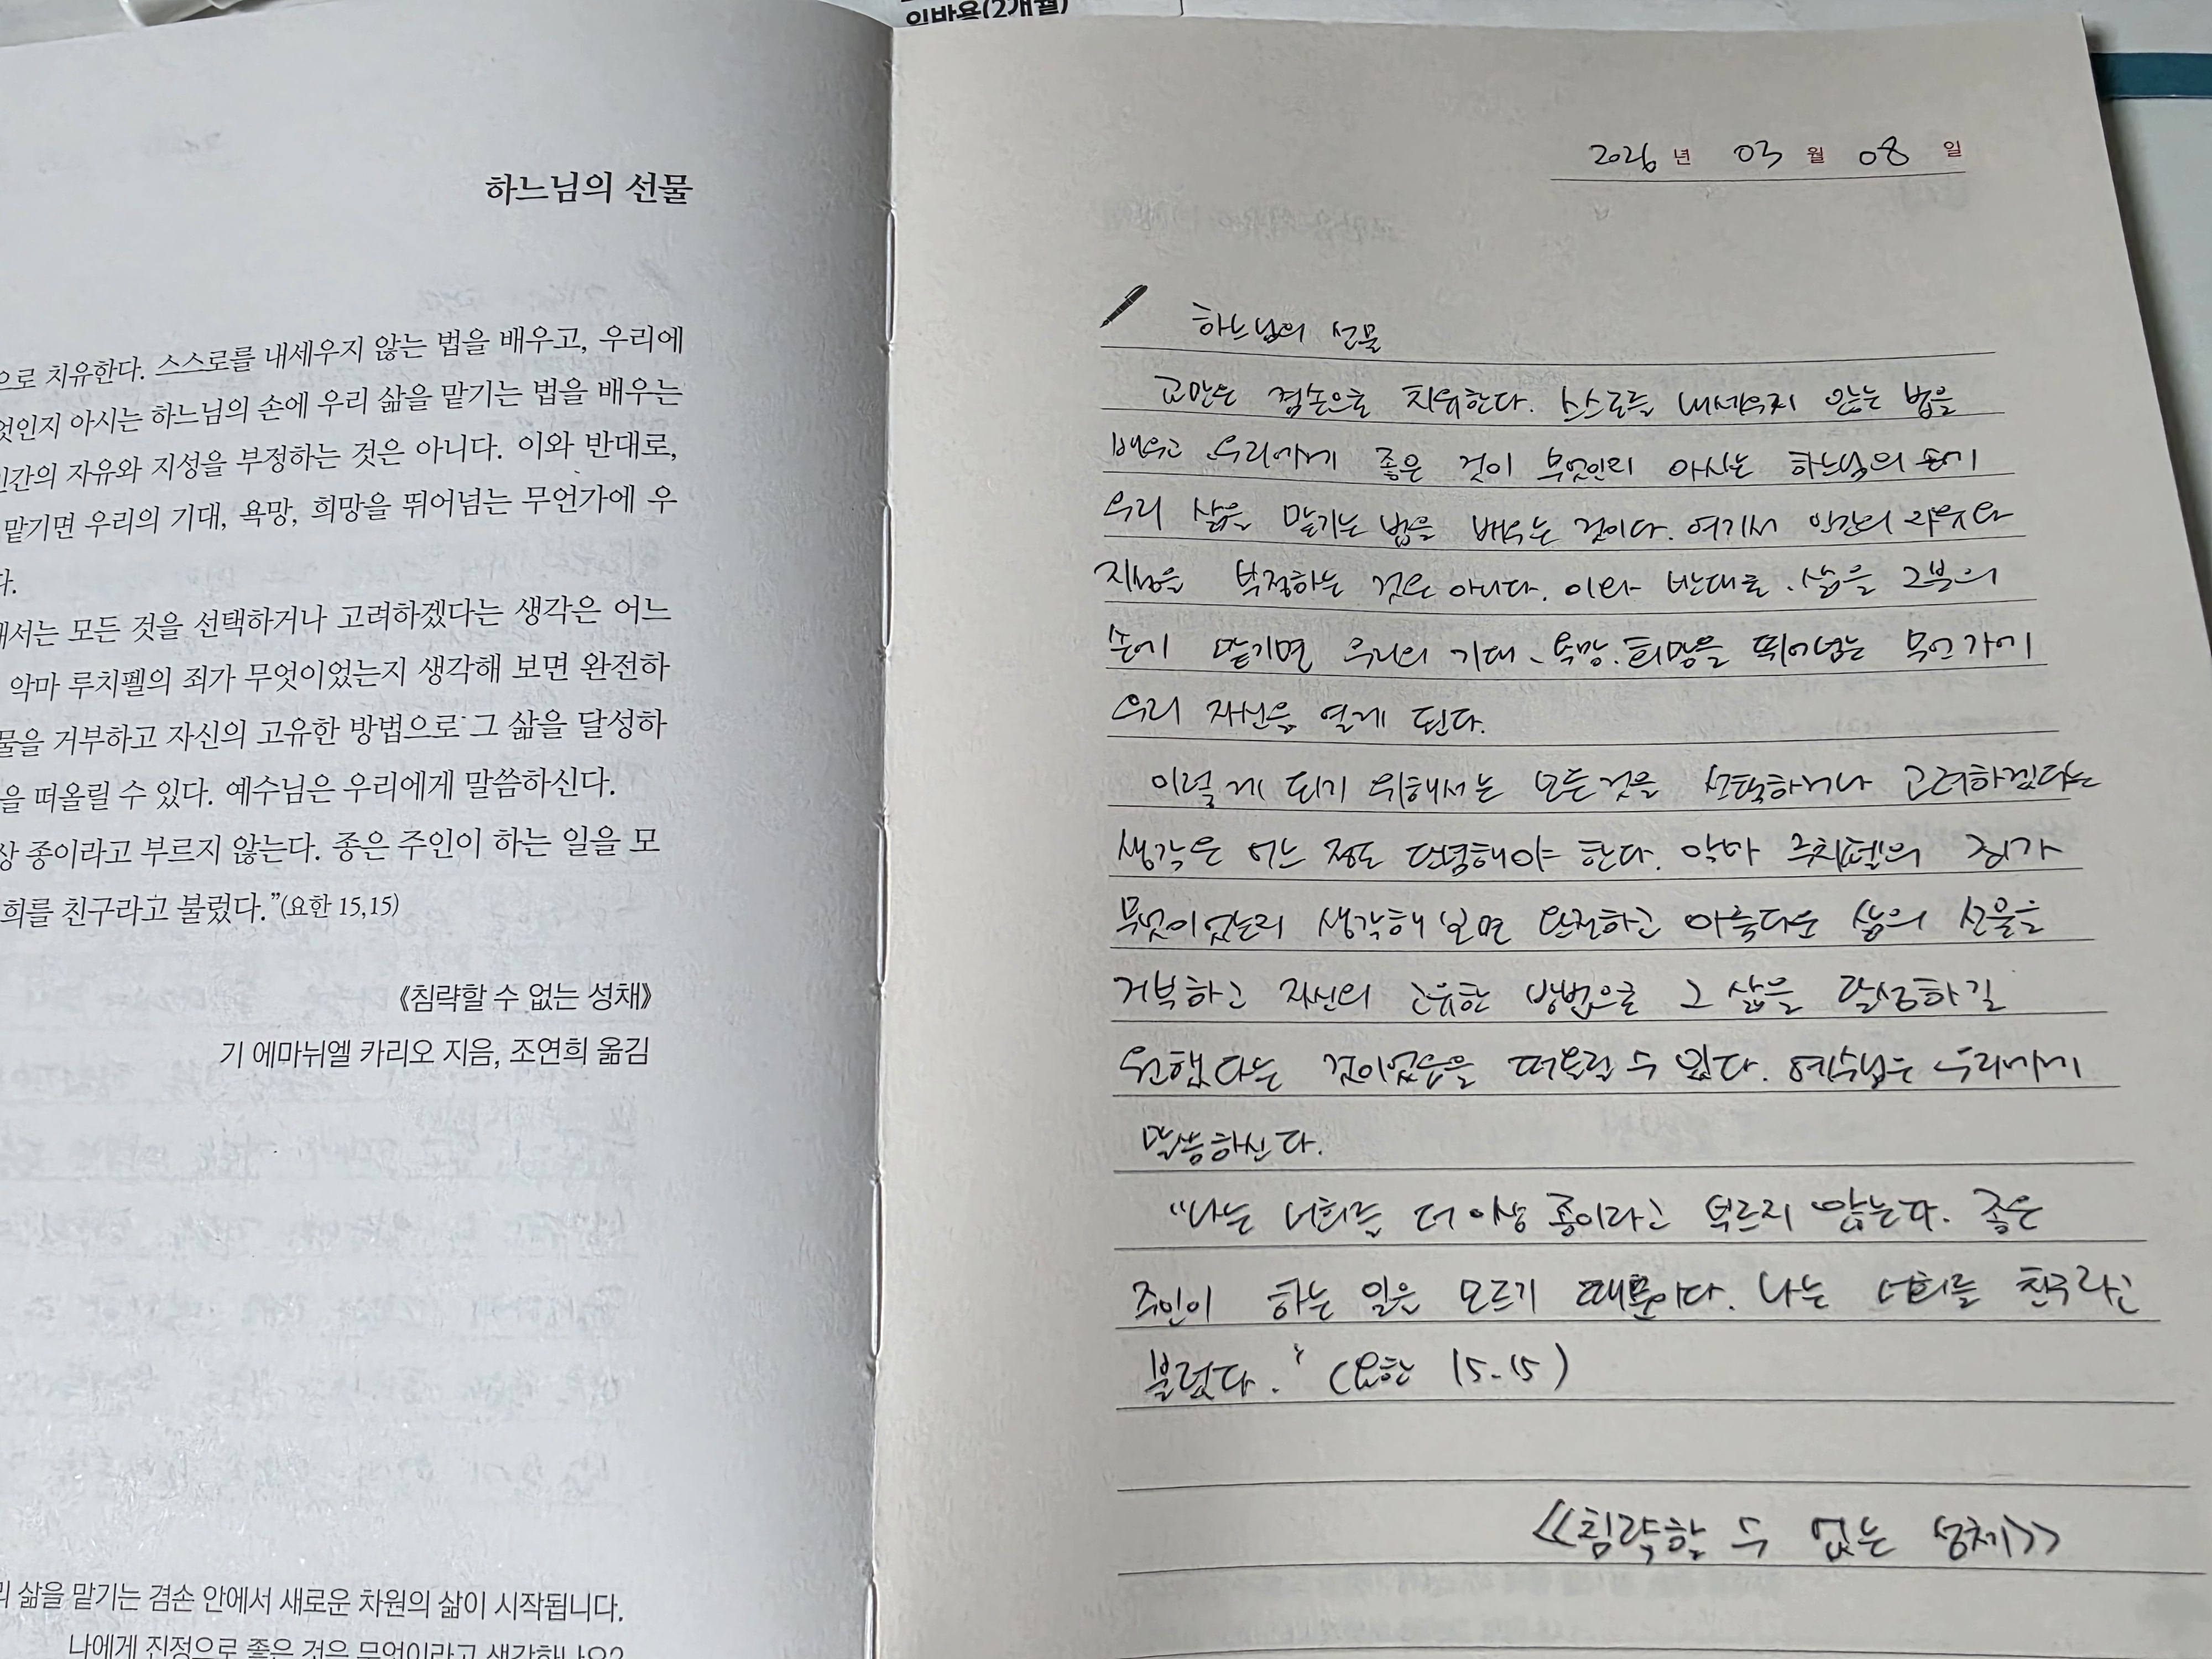 인바용(2개월)
하느님의 선물
으로 치유한다. 스스로를 내세우지 않는 법을 배우고, 우리에
엇인지 아시는 하느님의 손에 우리 삶을 맡기는 법을 배우는
인간의 자유와 지성을 부정하는 것은 아니다. 이와 반대로,
맡기면 우리의 기대, 욕망, 희망을 뛰어넘는 무언가에 우
다.
해서는 모든 것을 선택하거나 고려하겠다는 생각은 어느
악마 루치펠의 죄가 무엇이었는지 생각해 보면 완전하
물을 거부하고 자신의 고유한 방법으로 그 삶을 달성하
을 떠올릴 수 있다. 예수님은 우리에게 말씀하신다.
상 종이라고 부르지 않는다. 종은 주인이 하는 일을 모
희를 친구라고 불렀다.”(요한 15,15)
《침략할 수 없는 성채》
기 에마뉘엘 카리오 지음, 조연희 옮김
리 삶을 맡기는 겸손 안에서 새로운 차원의 삶이 시작됩니다.
나에게 진정으로 좋은 것은 무엇이라고 생각하나요?
2026년 03월 08일
하느님의 선물
교만은 겸손으로 치유한다. 스스로를 내세우지 않는 법을
배우고 우리에게 좋은 것이 무엇인지 아시는 하느님의 손에
우리 삶을 맡기는 법을 배우는 것이다. 여기서 인간의 자유와
지성을 부정하는 것은 아니다. 이와 반대로, 삶을 그분의
손에 맡기면 우리의 기대, 욕망, 희망을 뛰어넘는 무언가에
우리 자신을 열게 된다.
이렇게 되기 위해서는 모든것을 선택하거나 고려하겠다는
생각은 어느 정도 단념해야 한다. 악마 루치펠의 죄가
무엇이었는지 생각해 보면 완전하고 아름다운 삶의 선물을
거부하고 자신의 고유한 방법으로 그 삶을 달성하길
원했다는 것이었음을 떠올릴 수 있다. 예수님은 우리에게
말씀하신다.
“나는 너희를 더 이상 종이라고 부르지 않는다. 종은
주인이 하는 일은 모르기 때문이다. 나는 너희를 친구라고
불렀다.” (요한 15.15)
<<침략할 수 없는 성채>>